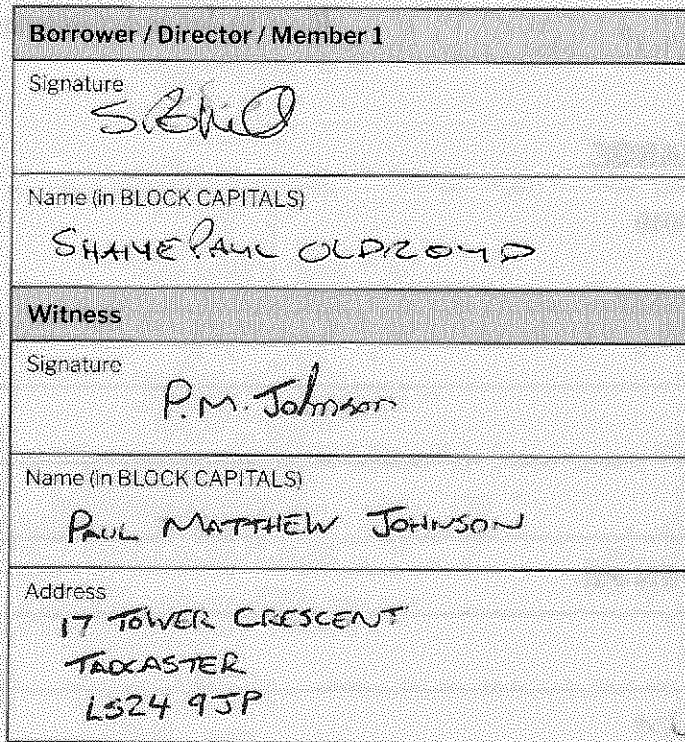 Borrower / Director / Member 1
Signature
Name (in BLOCK CAPITALS)
SHAYNE PAUL OLDROYD
Witness
Signature
P.M. Johnson
Name (in BLOCK CAPITALS)
PAUL MATTHEW JOHNSON
Address
17 TOWER CRESCENT
TADCASTER
LS24 9JP